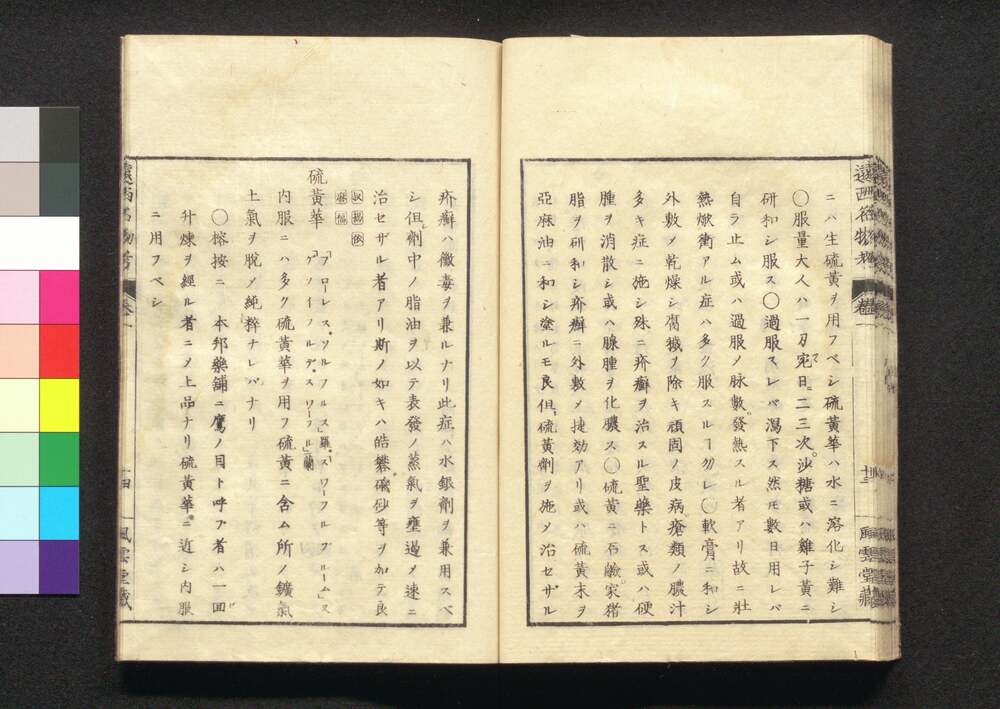 ニハ生硫黄ヲ用フベシ硫黄華ハ水ニ溶化シ難シ
〇服量大人ハ一刃宛日ニ二三次沙糖或ハ雞子黄ニ
研和シ服ス〇過服スレバ瀉下ス然モ數日用レバ
自ラ止ム或ハ過服ノ脉數發熱スル者アリ故ニ壯
熱焮衝アル症ハ多ク服スルヿ勿レ〇軟膏ニ和シ
外敷メ乾燥シ腐穢ヲ除キ頑固ノ皮病瘡類ノ膿汁
多キ症ニ施シ殊ニ疥癬ヲ治スル聖藥トス或ハ硬
腫ヲ消散シ或ハ腺腫ヲ化膿ス〇硫黄ニ石鹼家猪
脂ヲ研和シ疥癬ニ外敷メ捷効アリ或ハ硫黄末ヲ
亞麻油ニ和シ塗ルモ良但硫黄劑ヲ施メ治セザル
遠西名物考
卷一
十三
風雲堂藏
疥癬ハ黴毒ヲ兼ルナリ此症ハ水銀劑ヲ兼用スベ
シ但劑中ノ脂油ヲ以テ表發ノ蒸氣ヲ壅遏メ速ニ
治セザル者アリ斯ノ如キハ皓礬硇砂等ヲ加テ良
硫黄華
フローレス・ソルフルス」羅・スワーフルブルーム」ス
ゲソイノルデ・スワーフル」蘭
内服ニハ多ク硫黄華ヲ用フ硫黄ニ含ム所ノ鑛氣
土氣ヲ脱メ純粹ナレバナリ
〇榕按ニ本邦藥鋪ニ鷹ノ目ト呼ブ者ハ一回
升煉ヲ經ル者ニメ上品ナリ硫黄華ニ近シ内服
ニ用フベシ
遠西名物考
卷一
十四
風雲堂藏